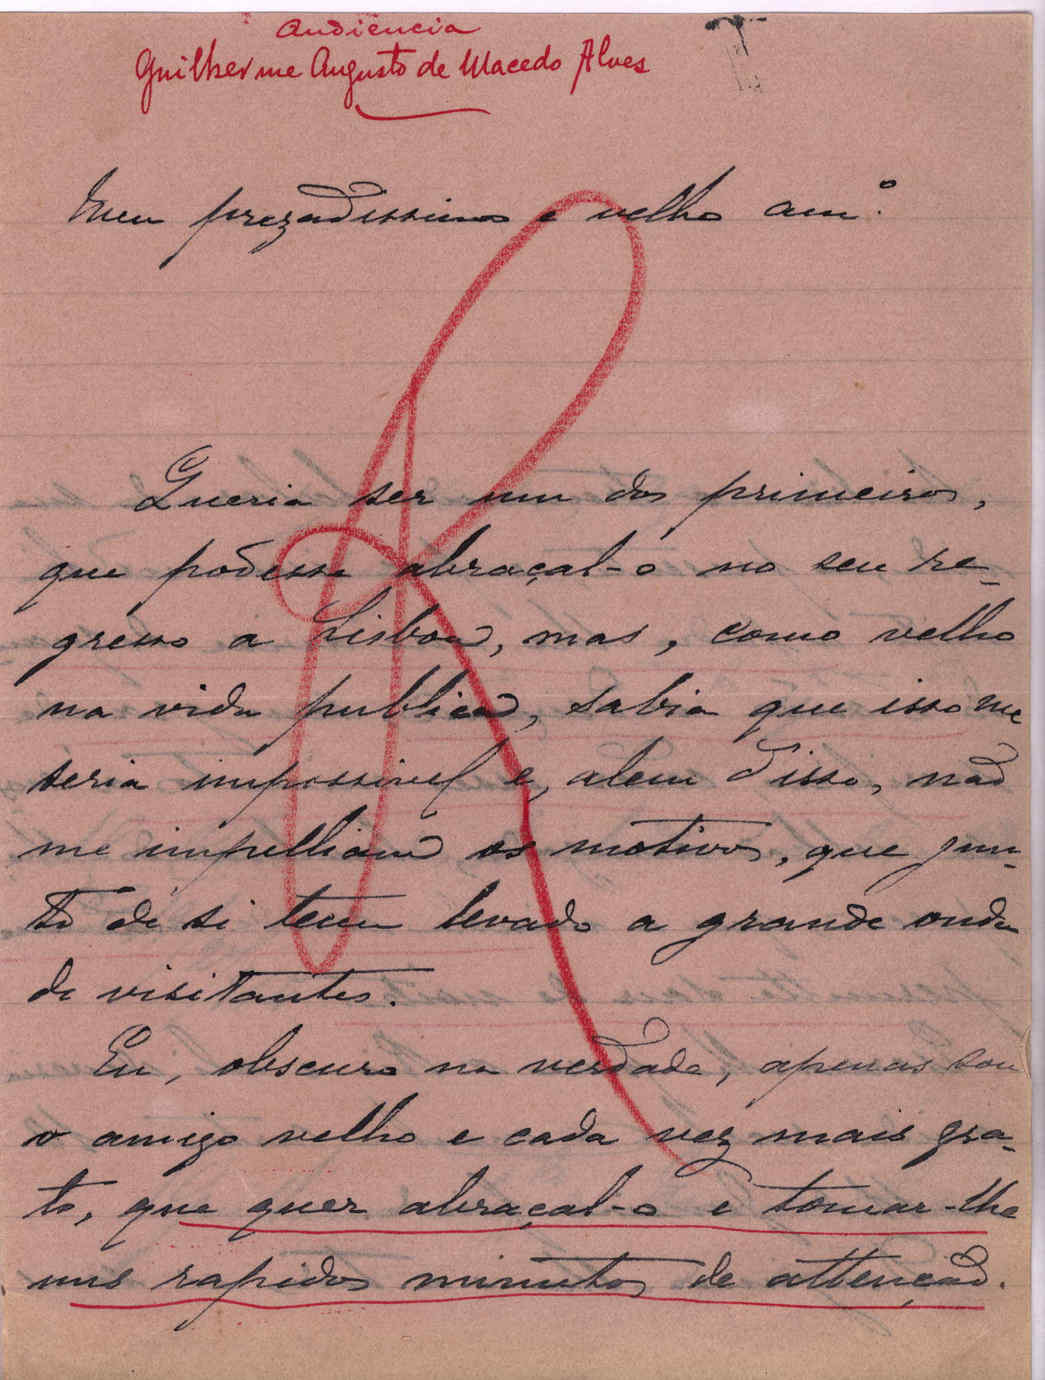 Audiencia
Guilherme Augusto de Macedo Alves
Meu prezadissimo e velho amº.
Queria ser um dos primeiros,
que podesse abraçal-o no seu re-
gresso a Lisboa, mas, como velho
na vida publica, sabia que isso me
seria impossivel e, alem d'isso, não
me impelliam os motivos, que jun-
to de si teem levado a grande onda
de visitantes.
Eu, obscuro na verdade, apenas sou
o amigo velho e cada vez mais gra-
to, que quer abraçal-o e tomar-lhe
uns rapidos minutos de attenção.